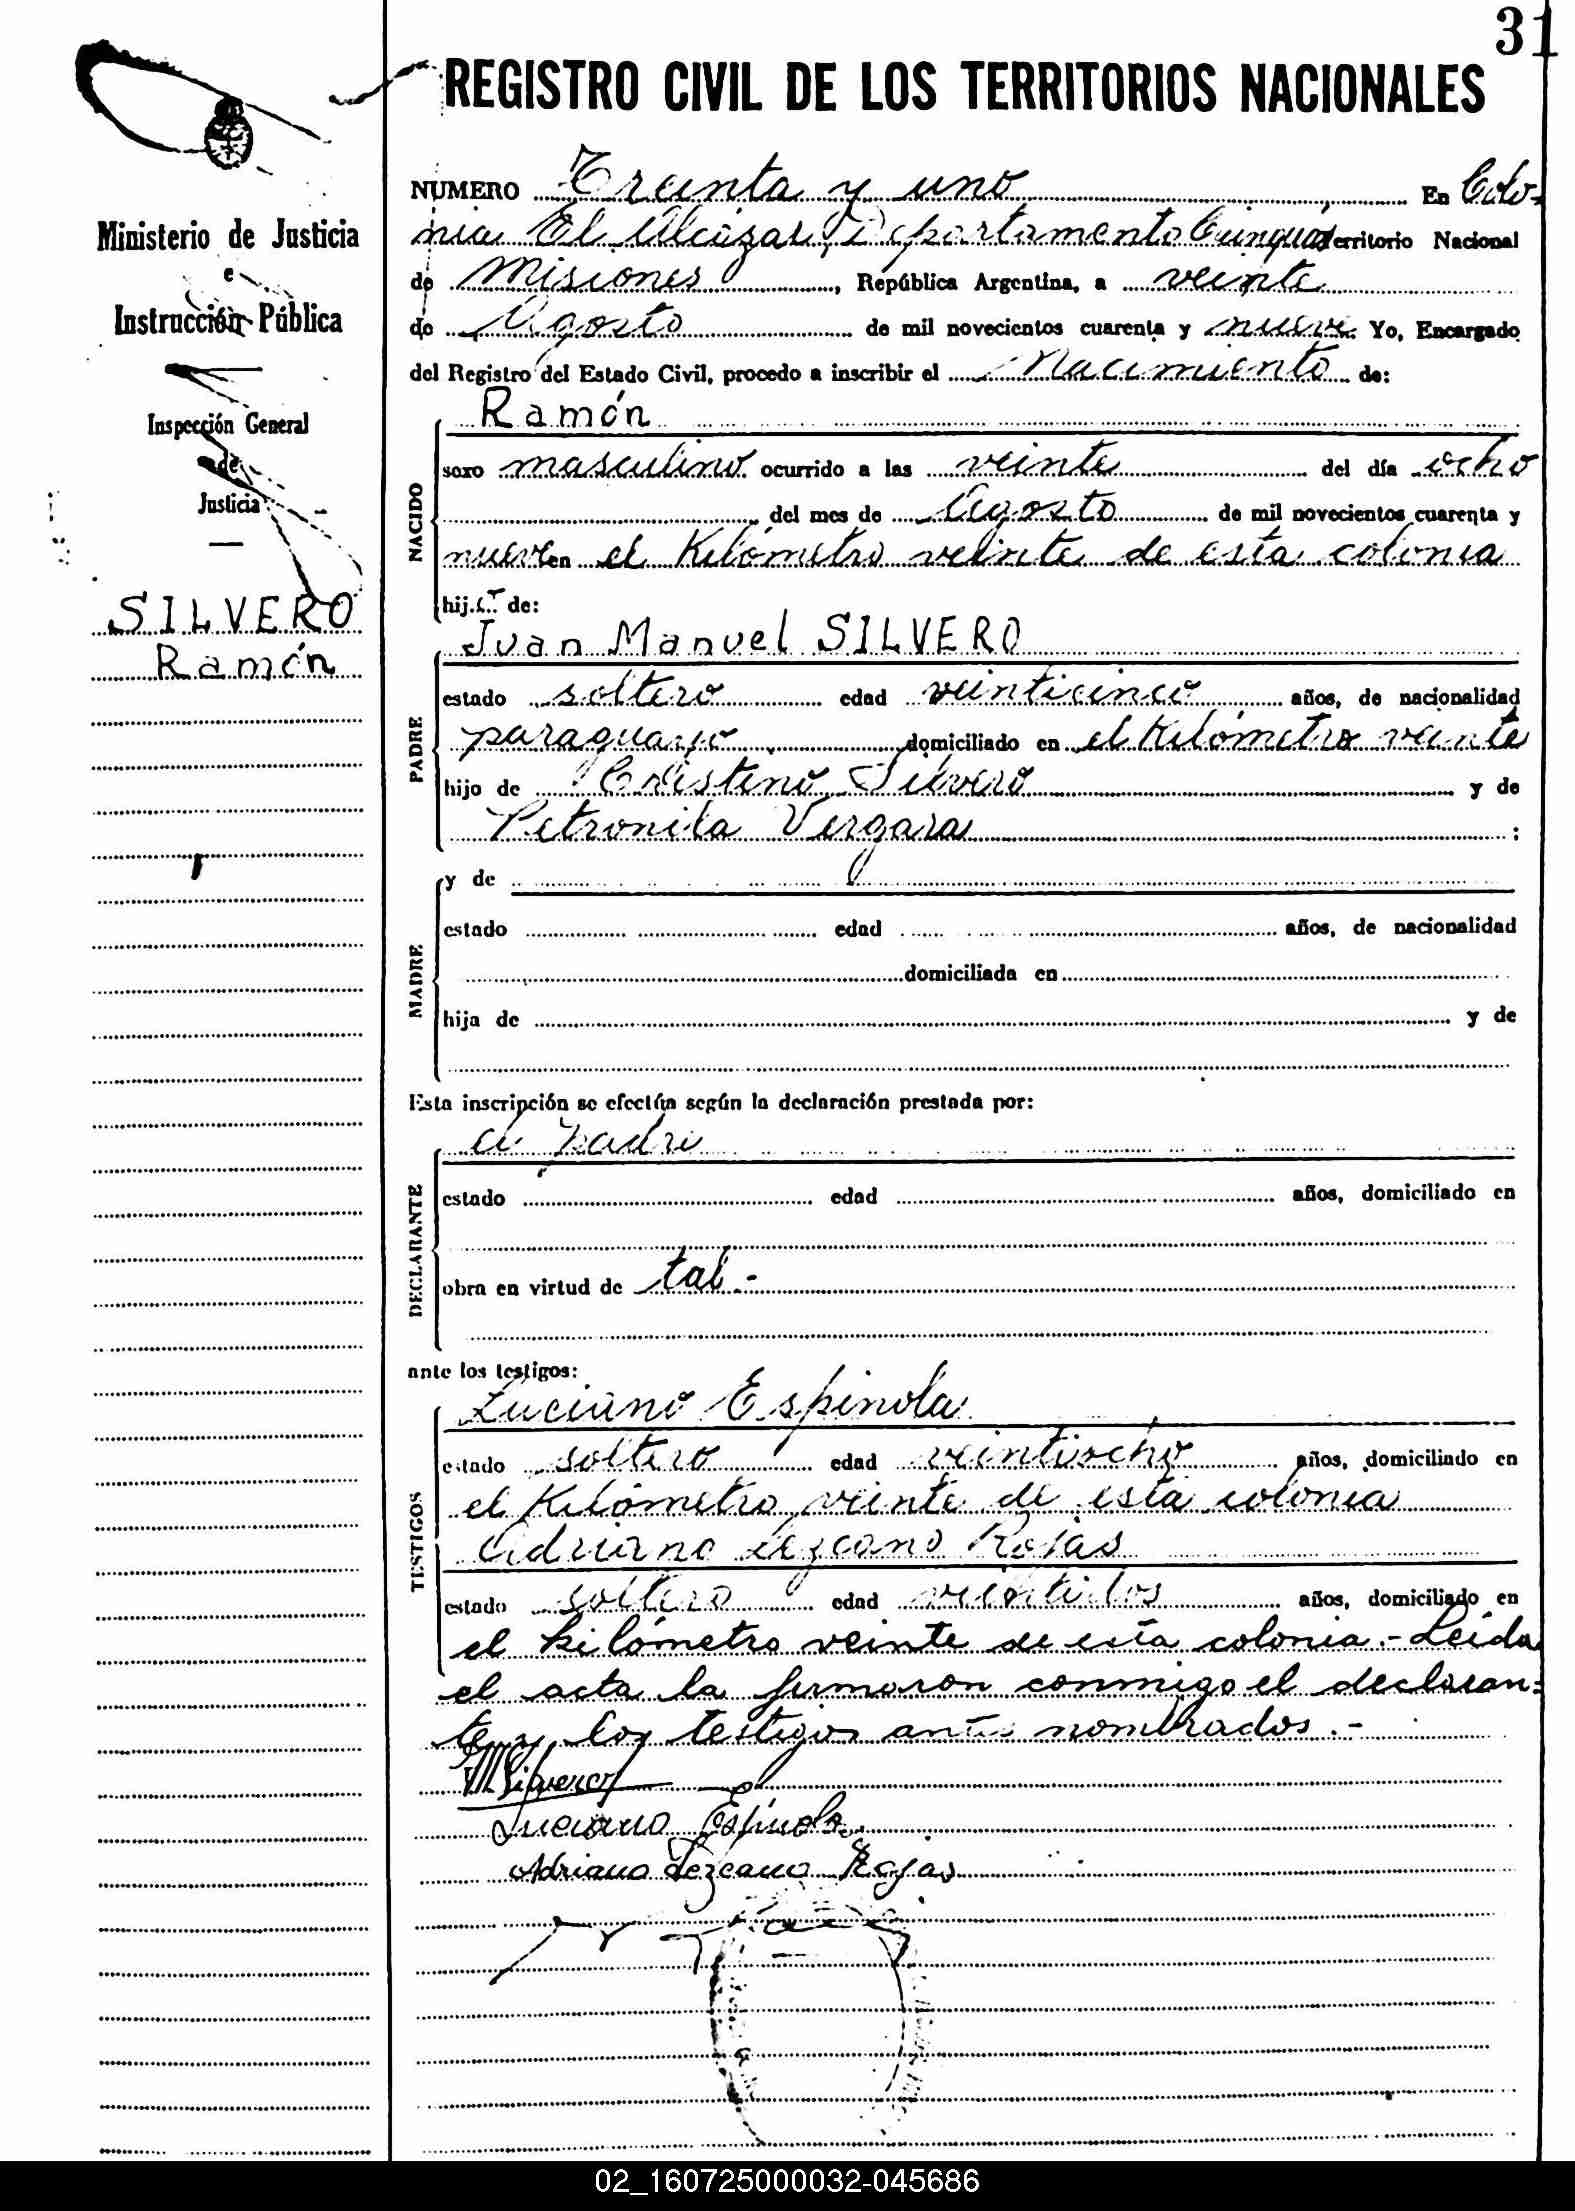 31
REGISTRO CIVIL DE LOS TERRITORIOS NACIONALES
Ministerio de Justicia
e
Instrucción Pública
Inspección General
de
Justicia
SILVERO
Ramón
NUMERO Treinta y uno En Colo-
nia El Alcázar, Departamento Cainguás Territorio Nacional
de Misiones, República Argentina, a veinte
de Agosto de mil novecientos cuarenta y nueve Yo, Encargado
del Registro del Estado Civil, procedo a inscribir el Nacimiento de:
NACIDO
Ramón
sexo masculino ocurrido a las veinte del día ocho
del mes de Agosto de mil novecientos cuarenta y
nueve en el Kilómetro veinte de esta colonia
hijo de:
PADRE
Juan Manuel SILVERO
estado soltero edad veinticinco años, de nacionalidad
paraguayo domiciliado en el Kilómetro veinte
hijo de Cristino Silvero y de
Petronila Vergara :
MADRE
y de
estado edad años, de nacionalidad
domiciliada en
hija de y de
Esta inscripción se efectúa según la declaración prestada por:
DECLARANTE
el padre
estado edad años, domiciliado en
obra en virtud de tal.-
ante los testigos:
TESTIGOS
Luciano Espínola
estado soltero edad veintiocho años, domiciliado en
el Kilómetro veinte de esta colonia
Adriano Lezcano Rojas
estado soltero edad veintidos años, domiciliado en
el kilómetro veinte de esta colonia.- Leída
el acta la firmaron conmigo el declaran-
te y los testigos antes nombrados.-
Silvero
Luciano Espínola
Adriano Lezcano Rojas
02_160725000032-045686